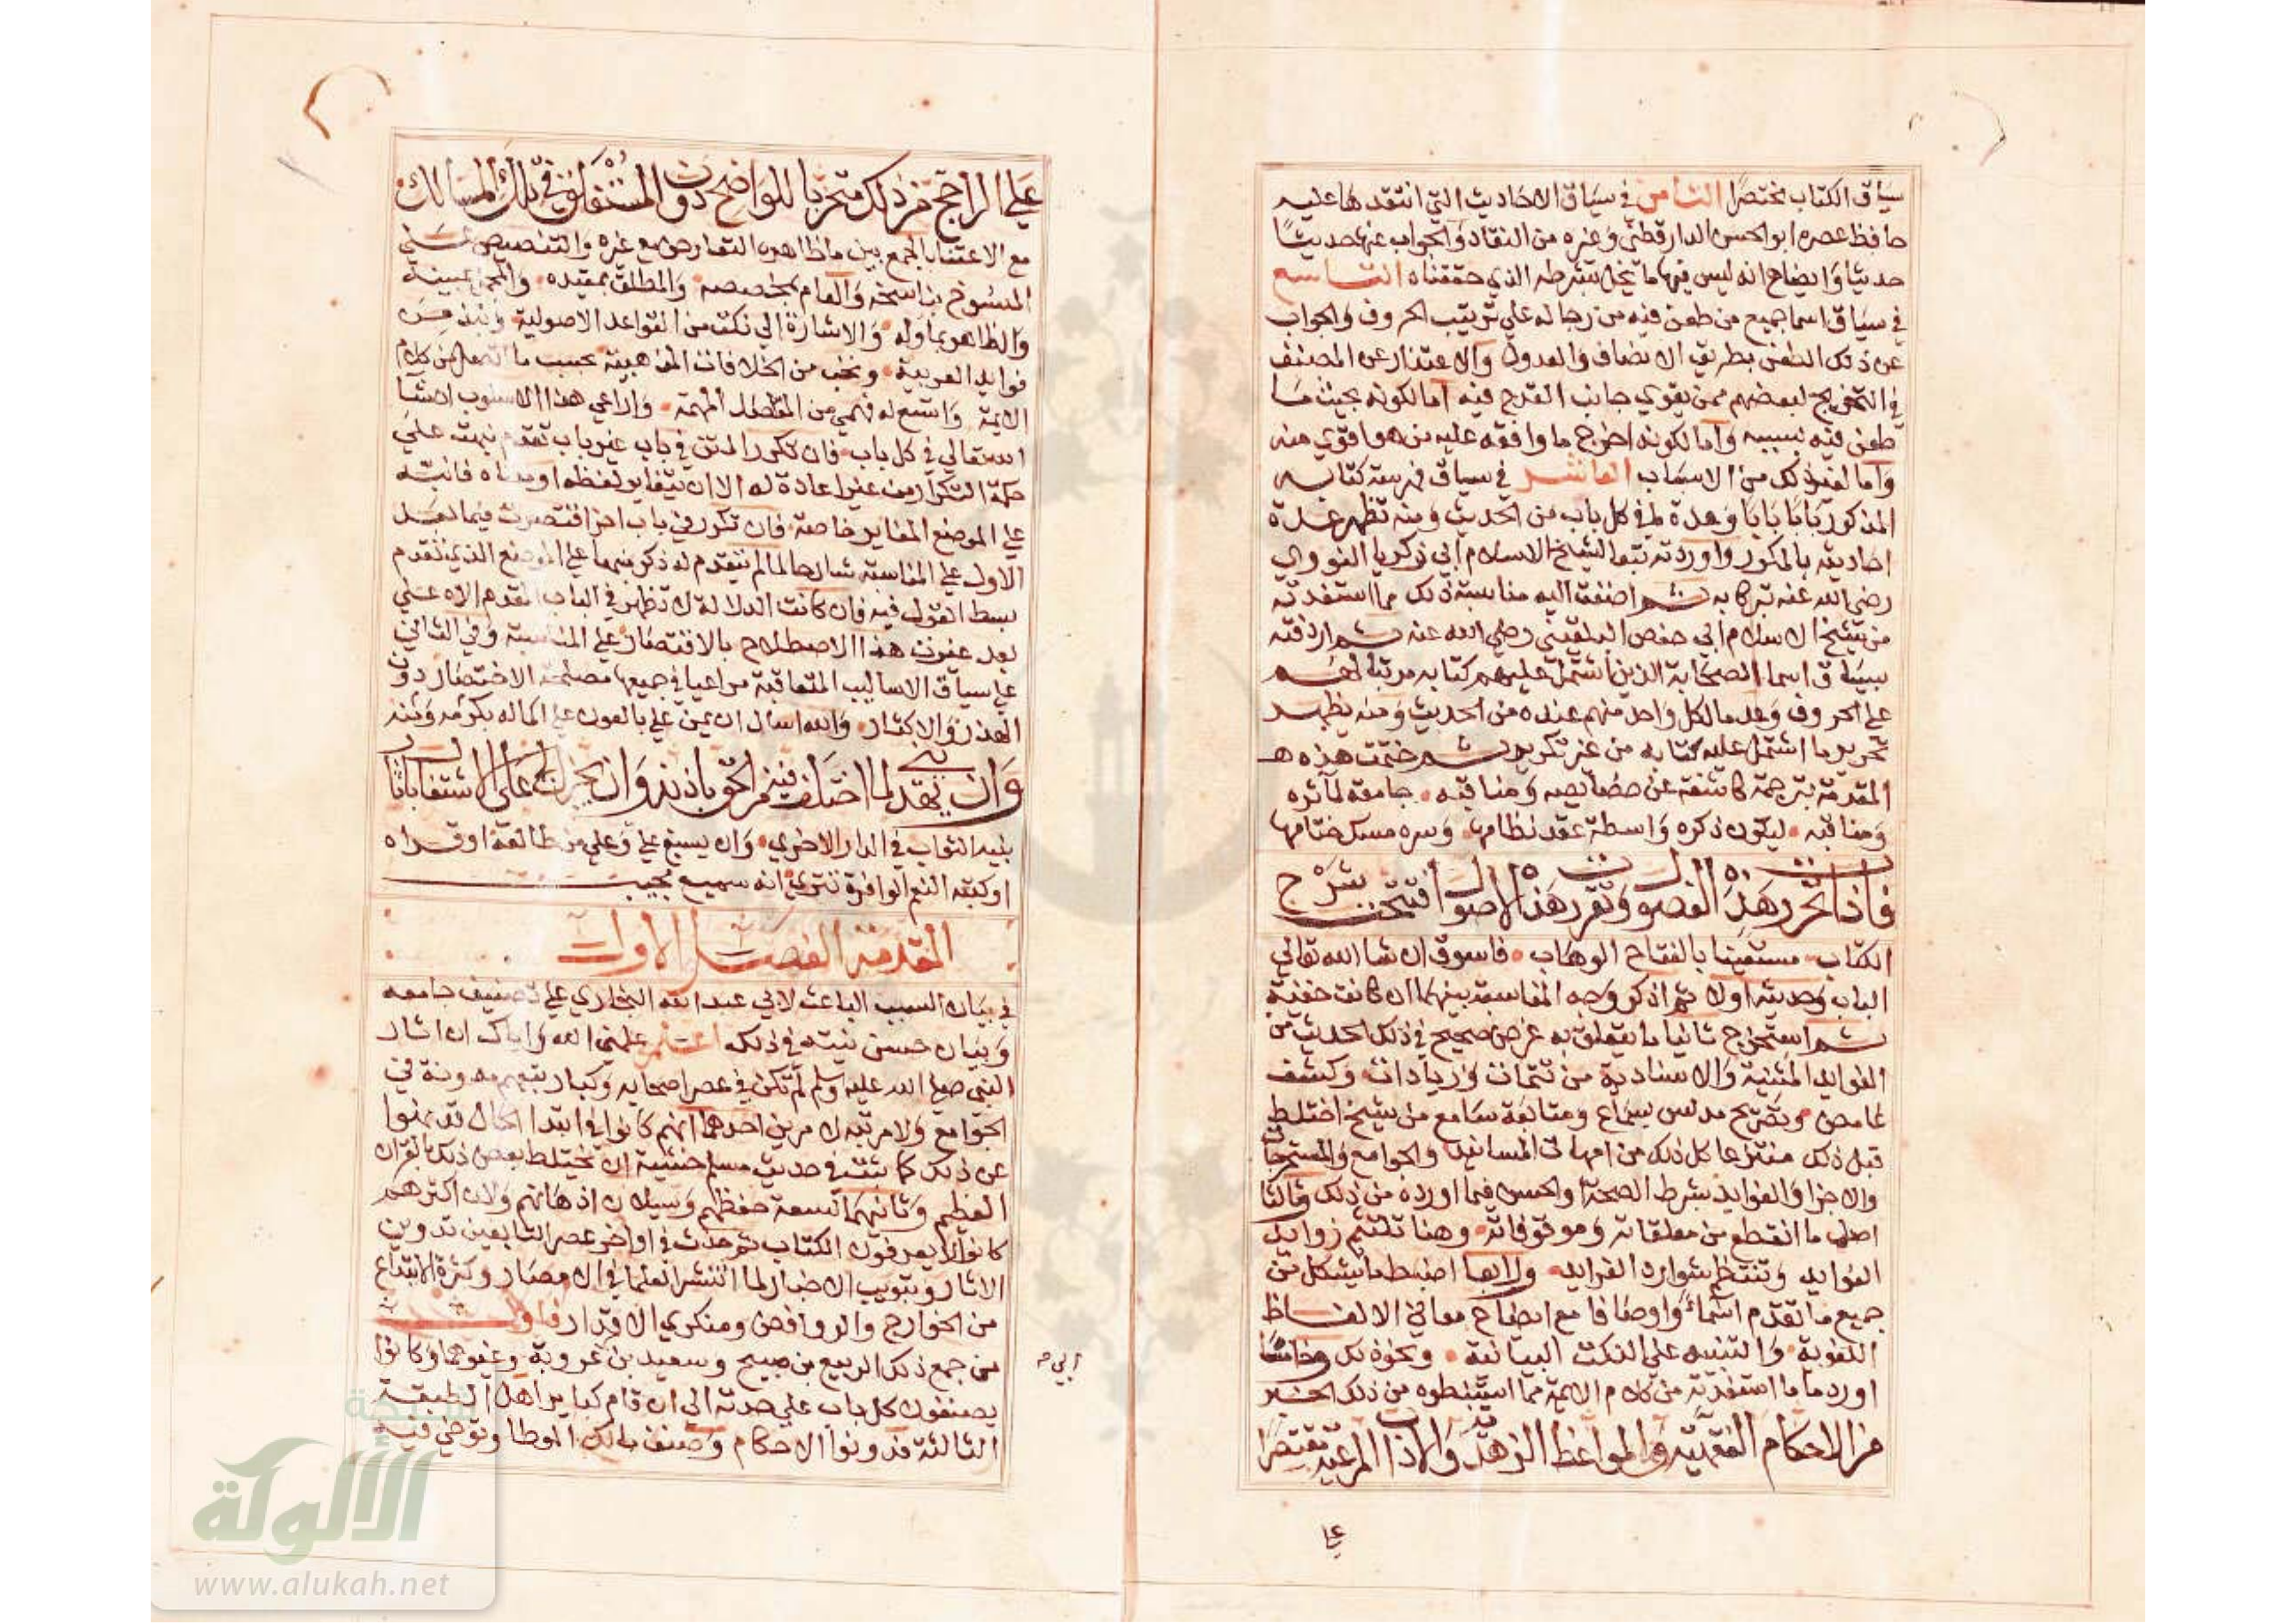 سياق الكتاب مختصرا الثامن في سياق الاحاديث التي انتقدها عليه
حافظ عصره ابو الحسن الدارقطني وغيره من النقاد والجواب عنها حديثا
حديثا وايضاح انه ليس فيها ما يخل بشرطه الذي حققناه التاسع
في سياق اسما جميع من طعن فيه من رجاله علي ترتيب الحروف والجواب
عن ذلك الطعن بطريق الانصاف والعدول والاعتذار عن المصنف
في التخريج لبعضهم ممن يقوي جانب القدح فيه اما لكونه بجيث ما
طعن فيه بسببه واما لكونه اخرج ما وافقه عليه من هو اقوي منه
واما لغير ذلك من الاسباب العاشر في سياق فهرسة كتابه
المذكور بابا بابا وعدة ما في كل باب من الحديث ومنه تظهر عدة
احاديثه بالمكرر واوردته تبعا لشيخ الاسلام ابي ذكريا النووي
رضي الله عنه تبركا به ثم اضفت اليه مناسبة ذلك مما استفدته
من شيخ الاسلام ابي حفص البلقيني رضي الله عنه ثم اردفته
بسياق اسما الصحابة الذين اشتمل عليهم كتابه مرتبا لهم
علي الحروف وعد ما لكل واحد منهم عنده من الحديث ومنه يظهر
تحرير ما اشتمل عليه كتابه من غير تكرير ثم ختمت هذه
المقدمة بترجمة كاشفة عن خصايصه ومناقبه جامعة لمآثره
ومناقبه ليكون ذكره واسطة عقد نظامها وسره مسك ختامها
فاذا تحررت هذه الفصول وتقررت هذه الاصول افتتحت شرح
الكتاب مستعينا بالفتاح الوهاب فاسوق ان شا الله تعالي
الباب وحديثه اولا ثم اذكر وجه المناسبة بينهما ان كانت خفية
ثم استخرج ثانيا ما يتعلق به غرض صحيح في ذلك الحديث من
الفوايد المتنية والاسنادية من تتمات وزيادات وكشف
غامض وتصريح مدلس بسماع ومتابعة سامع من شيخ اختلط
قبل ذلك منتزعا كل ذلك من امهات المسانيد والجوامع والمستخرجات
والاجزا والفوايد بشرط الصحة والحسن فيما اورده من ذلك وثالثا
اصل ما انقطع من معلقاته وموقوفاته وهنا تلتئم زوايد
الفوايد وتنتظم شوارد الفرايد ورابعا اضبط ما يشكل من
جميع ما تقدم اسماء واوصافا مع ايضاح معاني الالفاظ
اللغوية والتنبيه علي النكت البيانية ونحو ذلك وخامسا
اورد ما استفدته من كلام الايمة مما استنبطوه من ذلك الخبر
من الاحكام الفقهية والمواعظ الزهدية والاداب المرعية مقتصرا
علي
علي الراجح من ذلك متحريا للواضح دون المستغلق في تلك المسالك
مع الاعتنا بالجمع بين ما ظاهره التعارض مع غيره والتنصيص علي
المنسوخ بناسخه والعام بمخصصه والمطلق بمقيده والمجمل بمبينه
والظاهر بماوله والاشارة الي نكت من القواعد الاصولية ونبذ من
فوايد العربية ونخب من الخلافات المذهبية بحسب ما اتصل من كلام
الايمة واتسع له فهمي من المقاصد المهمة واراعي هذا الاسلوب ان شا
الله تعالي في كل باب فان تكرر المتن في باب غير باب تقدم نبهت علي
حكمة التكرار من غير اعادة له الا ان يتغاير لفظه او معناه فانبه
علي الموضع المغاير خاصة فان تكرر في باب اخر اقتصرت فيما بعد
الاول علي المناسبة شارحا لما لم يتقدم له ذكر منبها علي الموضع الذي تقدم
بسط القول فيه فان كانت الدلالة لا تظهر في الباب المقدم الا علي
بعد غيرت هذا الاصطلاح بالاقتصار علي المناسبة وفي الثاني
علي سياق الاساليب المتعاقبة مراعيا في جميعها مصلحة الاختصار دون
الهذر والاكثار والله اسال ان يمن علي بالعون علي اكماله بكرمه ومنه
وان يهديني لما اختلف فيه من الحق باذنه وان يجزل لي علي الاشتغال باثار
نبيه الثواب في الدار الاخري وان يسبغ علي وعلي من طالعه او قراه
او كتبه النعم الوافرة تتري انه سميع مجيب
المقدمة الفصل الاول
في بيان السبب الباعث لابي عبد الله البخاري علي تصنيف جامعه
وبيان حسن نيته في ذلك اعلم علمني الله واياك ان اثار
النبي صلي الله عليه وسلم لم تكن في عصر اصحابه وكبار تبعهم مدونة في
الجوامع ولا مرتبة لامرين احدهما انهم كانوا في ابتدا الحال قد نهوا
عن ذلك كما ثبت في حديث مسلم خشية ان يختلط بعض ذلك بالقران
العظيم وثانيهما لسعة حفظهم وسيلان اذهانهم ولان اكثرهم
كانوا لا يعرفون الكتاب ثم حدث في اواخر عصر التابعين تدوين
الاثار وتبويب الاخبار لما انتشر العلما في الامصار وكثر الابتداع
من الخوارج والروافض ومنكري الاقدار فاول
من جمع ذلك الربيع بن صبيح وسعيد بن عروبة وغيرهما وكانوا
ابي صح
يصنفون كل باب علي حدته الي ان قام كبار اهل الطبقة
الثالثة فدونوا الاحكام وصنف مالك الموطا وتوخي فيه
شبكة
الألوكة
www.alukah.net